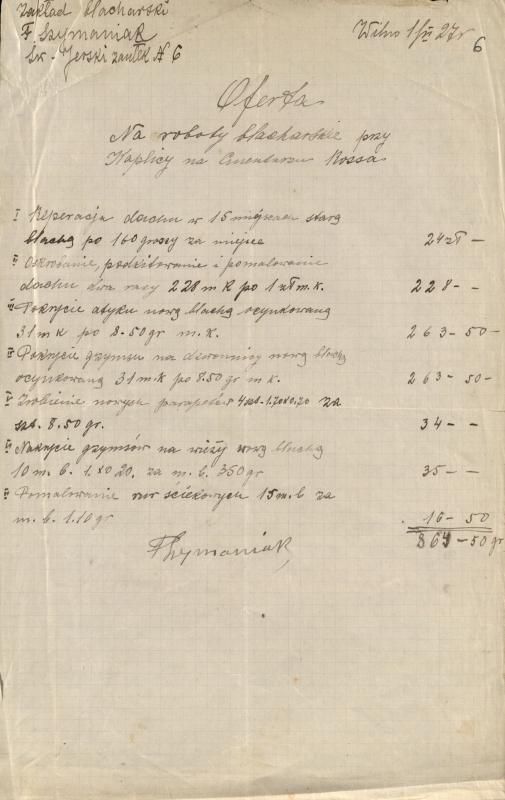 Zakład blacharski
F. Szymaniak
Św-Jerski zaułek № 6
Wilno 1/VI 27 r
6
Oferta
Na roboty blacharskie przy
Kaplicy na Cmentarzu Rossa
I Reperacja dachu w 15 miejscach starą
blachą po 160 groszy za miejsce 24 zł –
II Oskrobanie, podkitowanie i pomalowanie
dachu dwa razy 228 m k po 1 zł m. k. 228 –
III Pokrycie atyku nową blachą ocynkowaną
31 m k po 8-50 gr m. k. 263 – 50 –
IV Pokrycie gzymsu na dzwonnicy nową blachą
ocynkowaną 31 m. k po 8.50 gr m k. 263 – 50 –
V Zrobienie nowych parapetów 4 szt. 1.70x0.70 za
szt. 8.50 gr. 34 – –
VI Nakrycie gzymsów na wieży nową blachą
10 m. b. 1.x0 20. za m. b. 350 gr 35 – –
Pomalowanie rur ściekowych 15 m. b za
m. b. 1.10 gr 16 – 50
864 – 50 gr
F Szymaniak